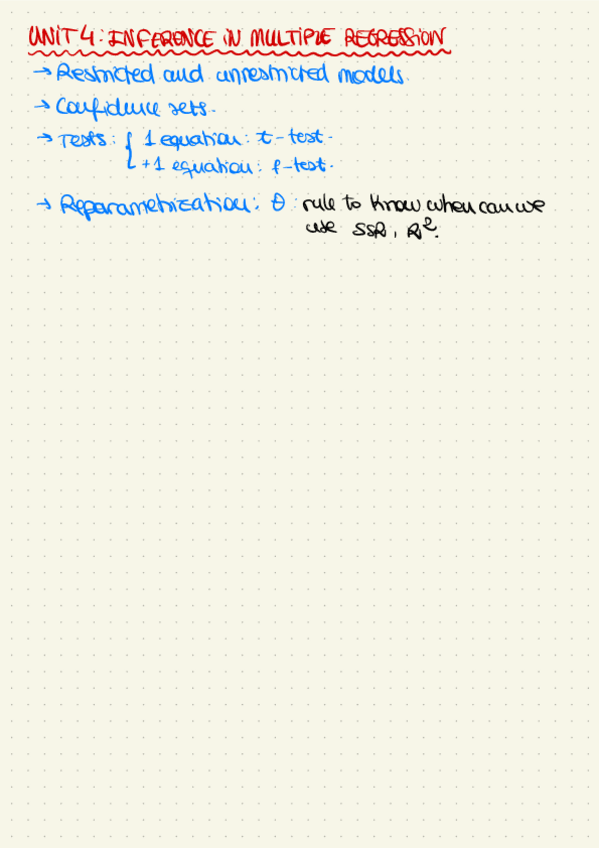 UNIT 4: INFERENCE IN MULTIPLE REGRESSION
→ Restricted and unrestricted models.
→ Confidence sets.
→ Tests: { 1 equation: t-test.
+1 equation: f-test.
→ Reparametrization: θ: rule to know when can we
use SSR, R².